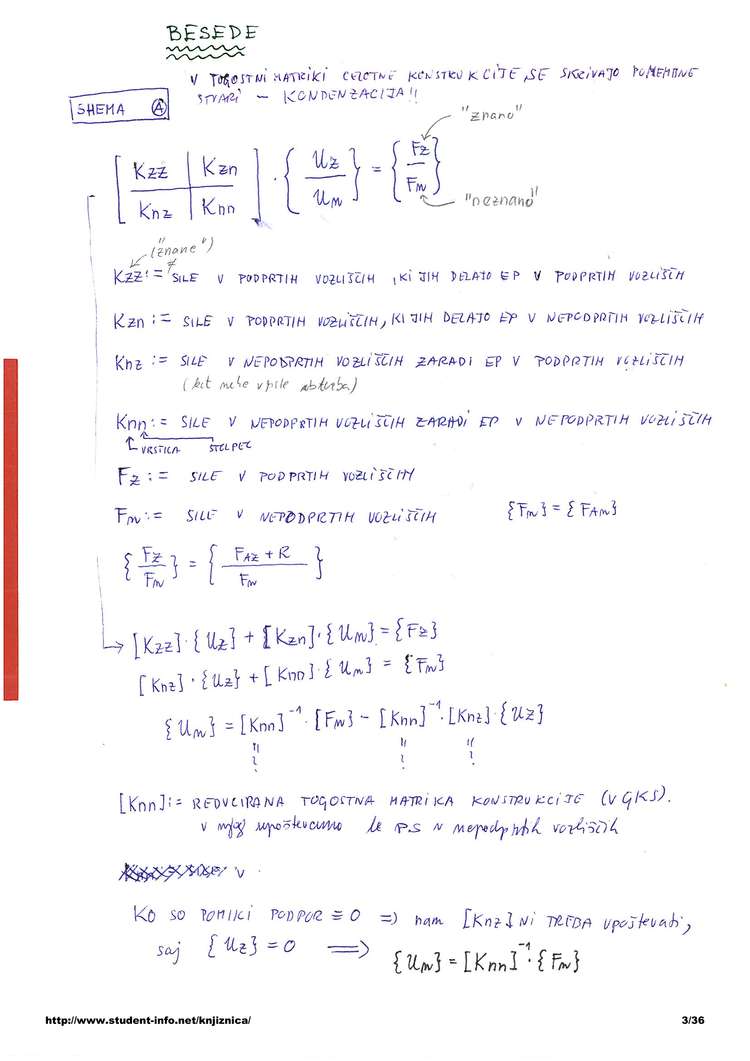 BESEDE
V TOGOSTNI MATRIKI CELOTNE KONSTRUKCIJE, SE SKRIVAJO POMEMBNE
SHEMA A
STVARI - KONDENZACIJA!!
"znano"
[Kzz | Kzn / Knz | Knn] · {Uz / Un} = {Fz / Fn}
"neznano"
("znane")
Kzz := SILE V PODPRTIH VOZLIŠČIH, KI JIH DELAJO EP V PODPRTIH VOZLIŠČIH
Kzn := SILE V PODPRTIH VOZLIŠČIH, KI JIH DELAJO EP V NEPODPRTIH VOZLIŠČIH
Knz := SILE V NEPODPRTIH VOZLIŠČIH ZARADI EP V PODPRTIH VOZLIŠČIH
Knn := SILE V NEPODPRTIH VOZLIŠČIH ZARADI EP V NEPODPRTIH VOZLIŠČIH
VRSTICA STOLPEC
Fz := SILE V PODPRTIH VOZLIŠČIH
Fn := SILE V NEPODPRTIH VOZLIŠČIH {Fn} = {FAn}
{Fz / Fn} = {FAz + R / Fn}
[Kzz]·{Uz} + [Kzn]·{Un} = {Fz}
[Knz]·{Uz} + [Knn]·{Un} = {Fn}
{Un} = [Knn]⁻¹·[Fn] - [Knn]⁻¹·[Knz]·{Uz}
[Knn] := REDUCIRANA TOGOSTNA MATRIKA KONSTRUKCIJE (V GKS).
v njej upoštevamo le P.S v nepodprtih vozliščih
V
KO SO POMIKI PODPOR ≡ 0 => nam [Knz] NI TREBA upoštevati,
saj {Uz} = 0 => {Un} = [Knn]⁻¹·{Fn}
http://www.student-info.net/knjiznica/ 3/36